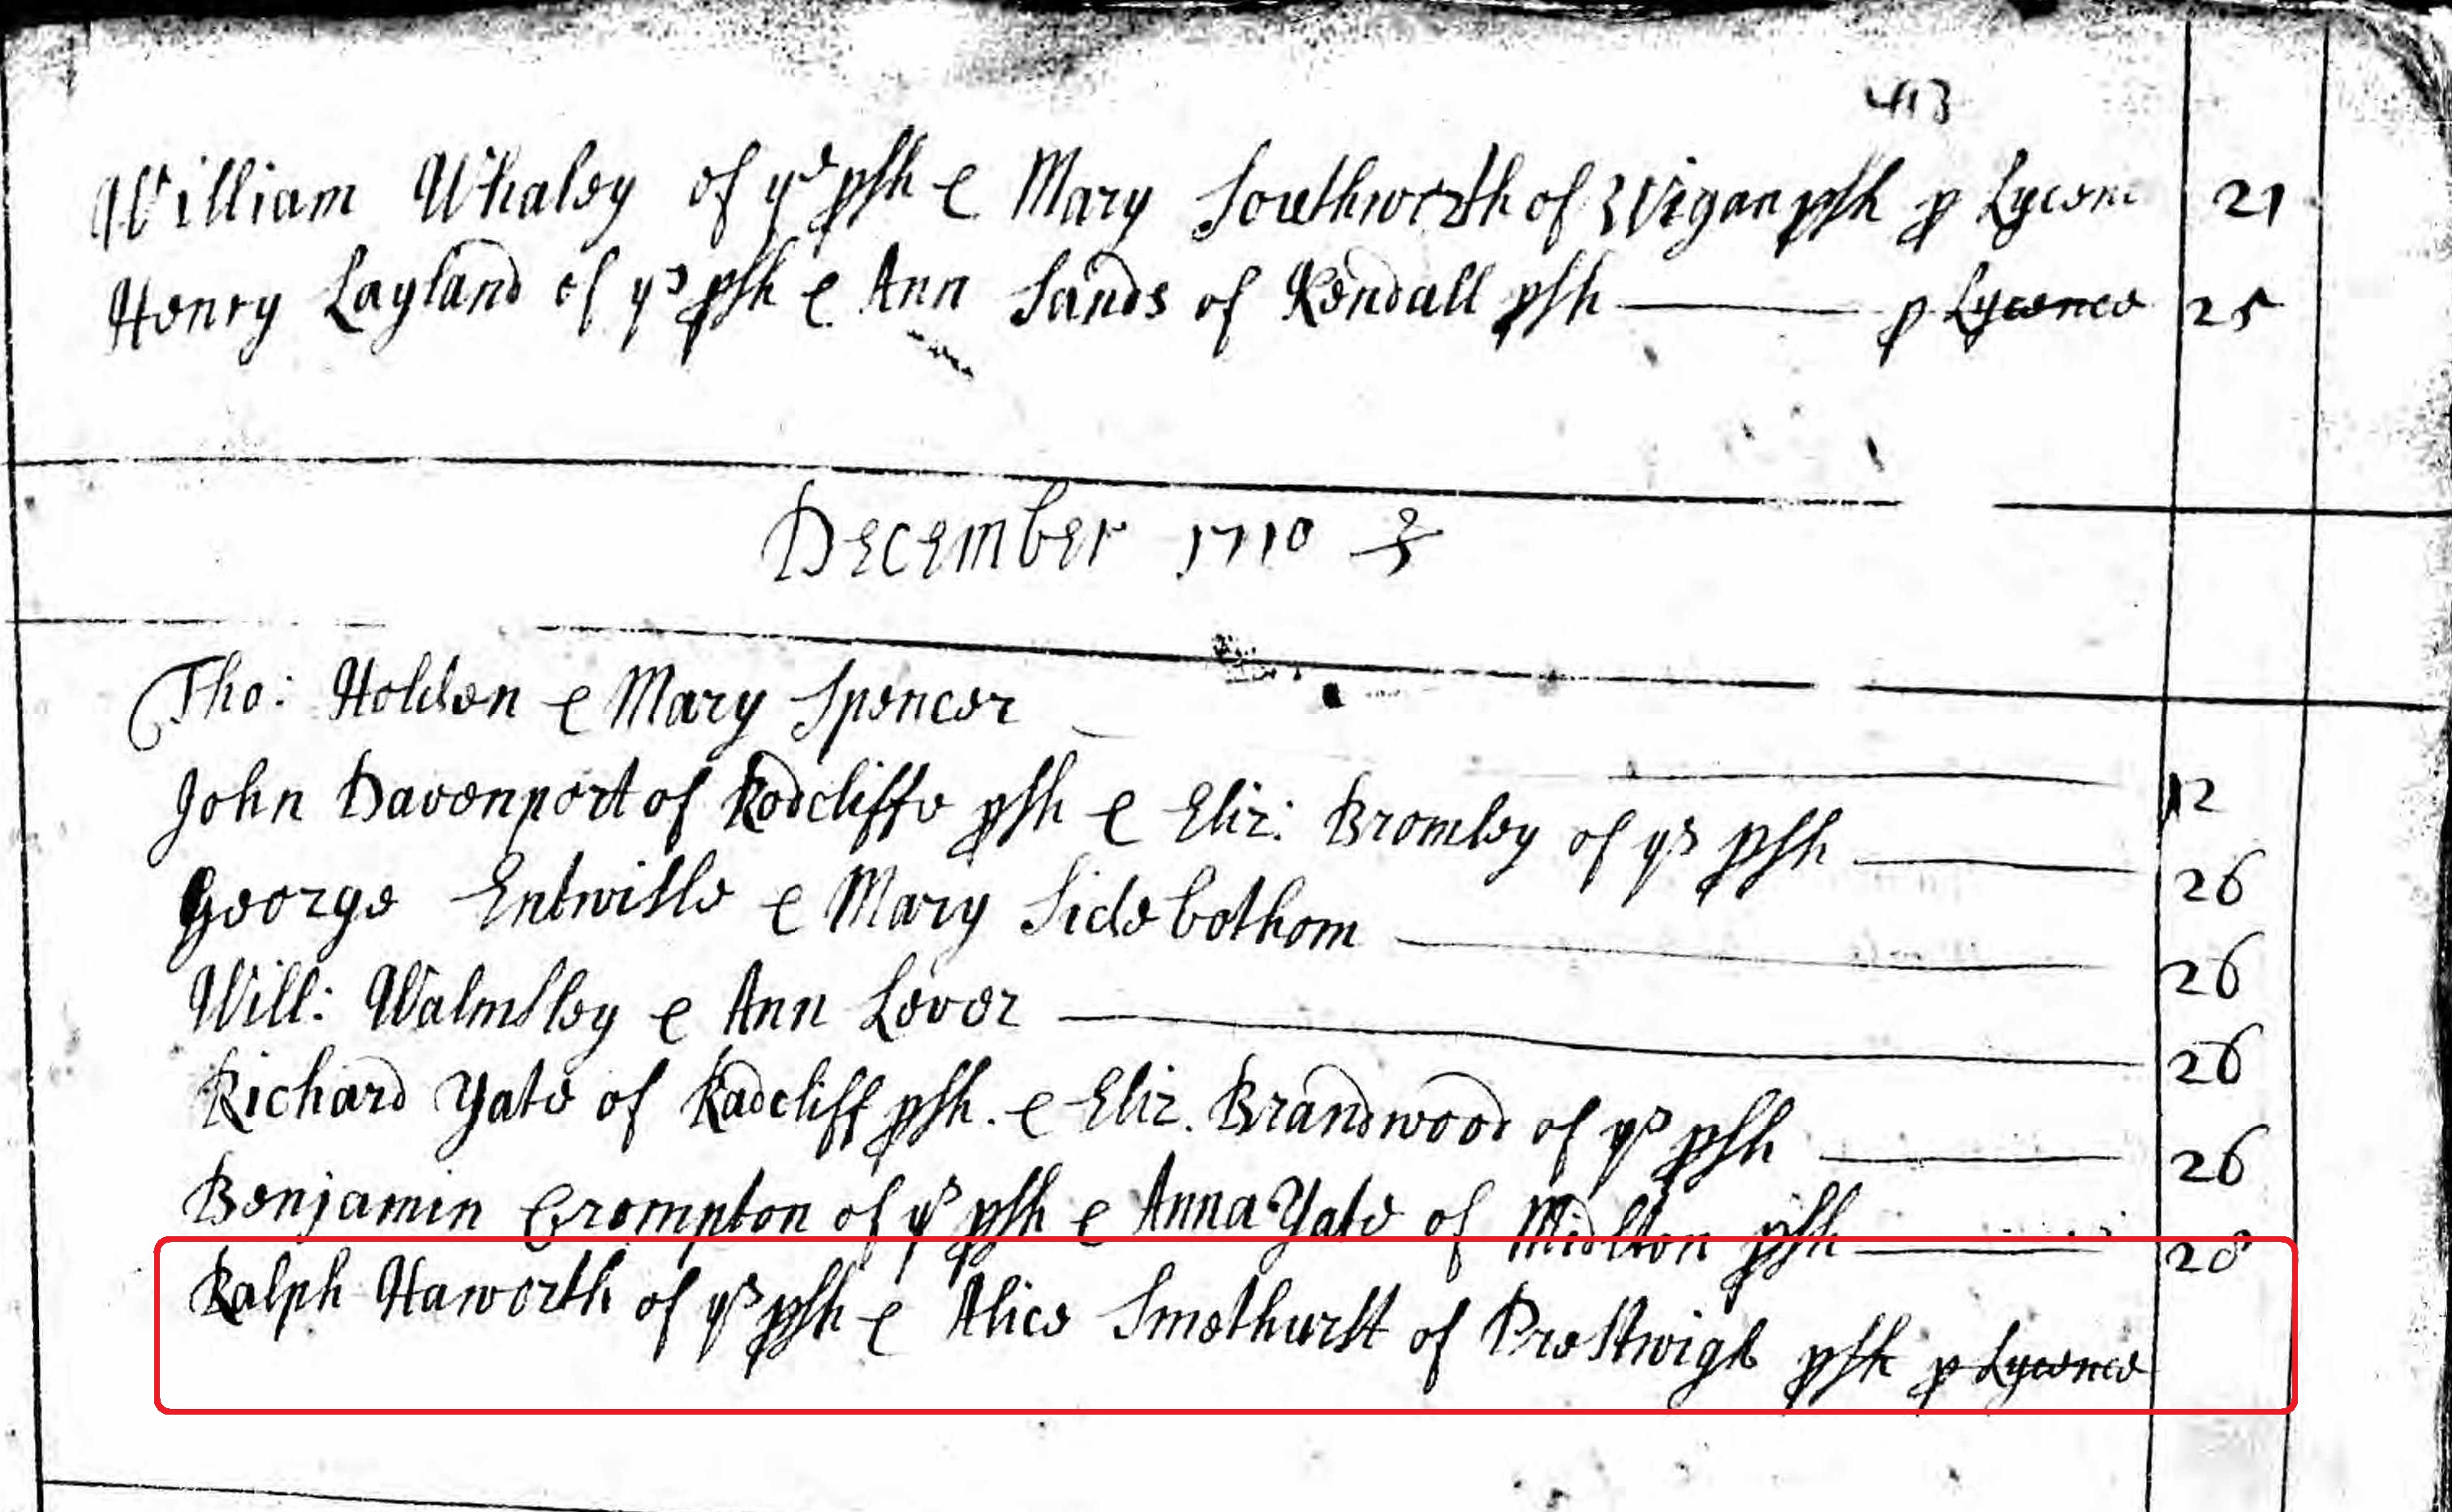 413
William Whaley of ys psh e Mary Southworth of Wigan psh p Lycenc 21
Henry Layland of ys psh e Ann Sands of Kendall psh p Lycence 25
December 1710
Tho: Holden e Mary Spencer 12
John Davenport of Radcliffe psh e Eliz: Bromley of ys psh 26
George Entwisle e Mary Sidebothom 26
Will: Walmsley e Ann Lever 26
Richard Yate of Radcliff psh. e Eliz. Brandwood of ys psh 26
Benjamin Crompton of ys psh e Anna Yate of Midlton psh 28
Ralph Haworth of ys psh e Alice Smethurst of Prestwich psh p Lycence